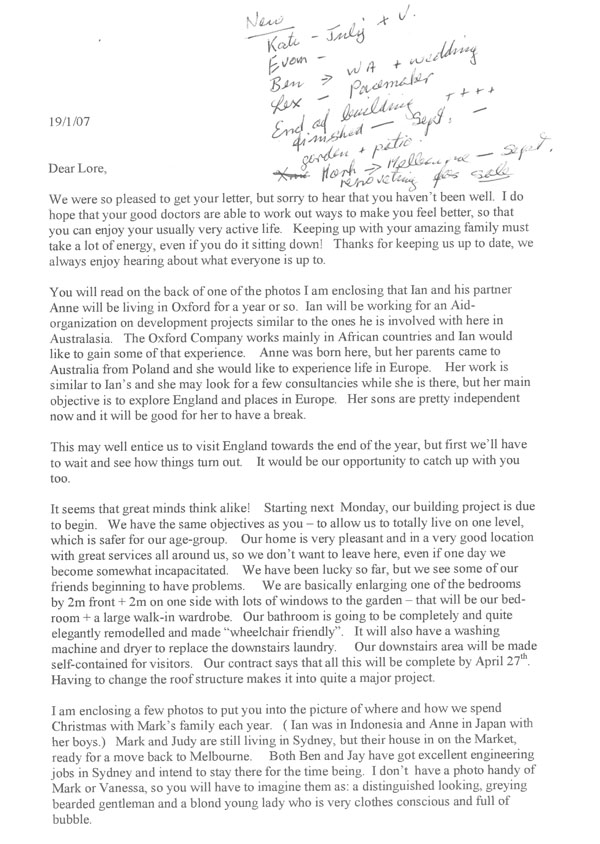 New
Kate - July + V.
Evan -
Ben → WA + wedding
Lex - Pacemaker
End of building ++++
finished - Sept. -
garden + patio.
Mark → Melbourne - Sept.
renovating for sale
19/1/07
Dear Lore,
We were so pleased to get your letter, but sorry to hear that you haven't been well. I do
hope that your good doctors are able to work out ways to make you feel better, so that
you can enjoy your usually very active life. Keeping up with your amazing family must
take a lot of energy, even if you do it sitting down! Thanks for keeping us up to date, we
always enjoy hearing about what everyone is up to.
You will read on the back of one of the photos I am enclosing that Ian and his partner
Anne will be living in Oxford for a year or so. Ian will be working for an Aid-
organization on development projects similar to the ones he is involved with here in
Australasia. The Oxford Company works mainly in African countries and Ian would
like to gain some of that experience. Anne was born here, but her parents came to
Australia from Poland and she would like to experience life in Europe. Her work is
similar to Ian's and she may look for a few consultancies while she is there, but her main
objective is to explore England and places in Europe. Her sons are pretty independent
now and it will be good for her to have a break.
This may well entice us to visit England towards the end of the year, but first we'll have
to wait and see how things turn out. It would be our opportunity to catch up with you
too.
It seems that great minds think alike! Starting next Monday, our building project is due
to begin. We have the same objectives as you – to allow us to totally live on one level,
which is safer for our age-group. Our home is very pleasant and in a very good location
with great services all around us, so we don't want to leave here, even if one day we
become somewhat incapacitated. We have been lucky so far, but we see some of our
friends beginning to have problems. We are basically enlarging one of the bedrooms
by 2m front + 2m on one side with lots of windows to the garden – that will be our bed-
room + a large walk-in wardrobe. Our bathroom is going to be completely and quite
elegantly remodelled and made “wheelchair friendly”. It will also have a washing
machine and dryer to replace the downstairs laundry. Our downstairs area will be made
self-contained for visitors. Our contract says that all this will be complete by April 27th.
Having to change the roof structure makes it into quite a major project.
I am enclosing a few photos to put you into the picture of where and how we spend
Christmas with Mark's family each year. ( Ian was in Indonesia and Anne in Japan with
her boys.) Mark and Judy are still living in Sydney, but their house in on the Market,
ready for a move back to Melbourne. Both Ben and Jay have got excellent engineering
jobs in Sydney and intend to stay there for the time being. I don't have a photo handy of
Mark or Vanessa, so you will have to imagine them as: a distinguished looking, greying
bearded gentleman and a blond young lady who is very clothes conscious and full of
bubble.